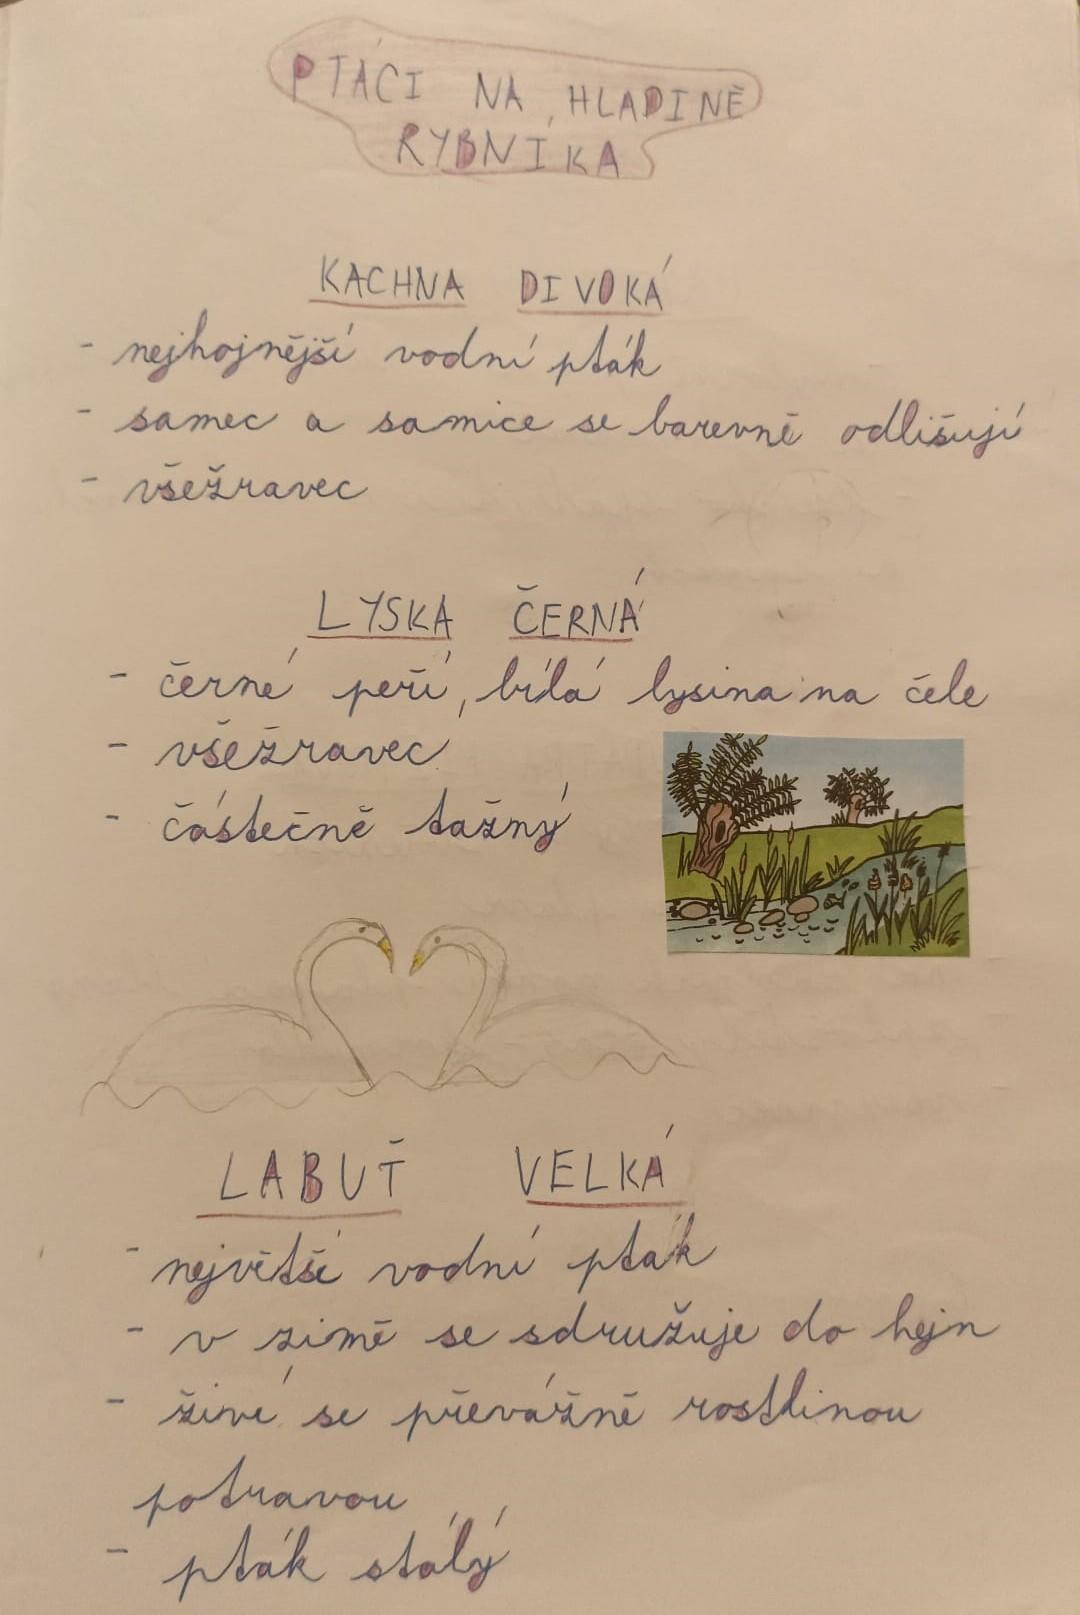 PTÁCI NA HLADINĚ
RYBNÍKA
KACHNA DIVOKÁ
- nejhojnější vodní pták
- samec a samice se barevně odlišují
- všežravec
LYSKA ČERNÁ
- černé peří, bílá lysina na čele
- všežravec
- částečně tažný
LABUŤ VELKÁ
- největší vodní pták
- v zimě se sdružuje do hejn
- živí se převážně rostlinou
potravou
- pták stálý